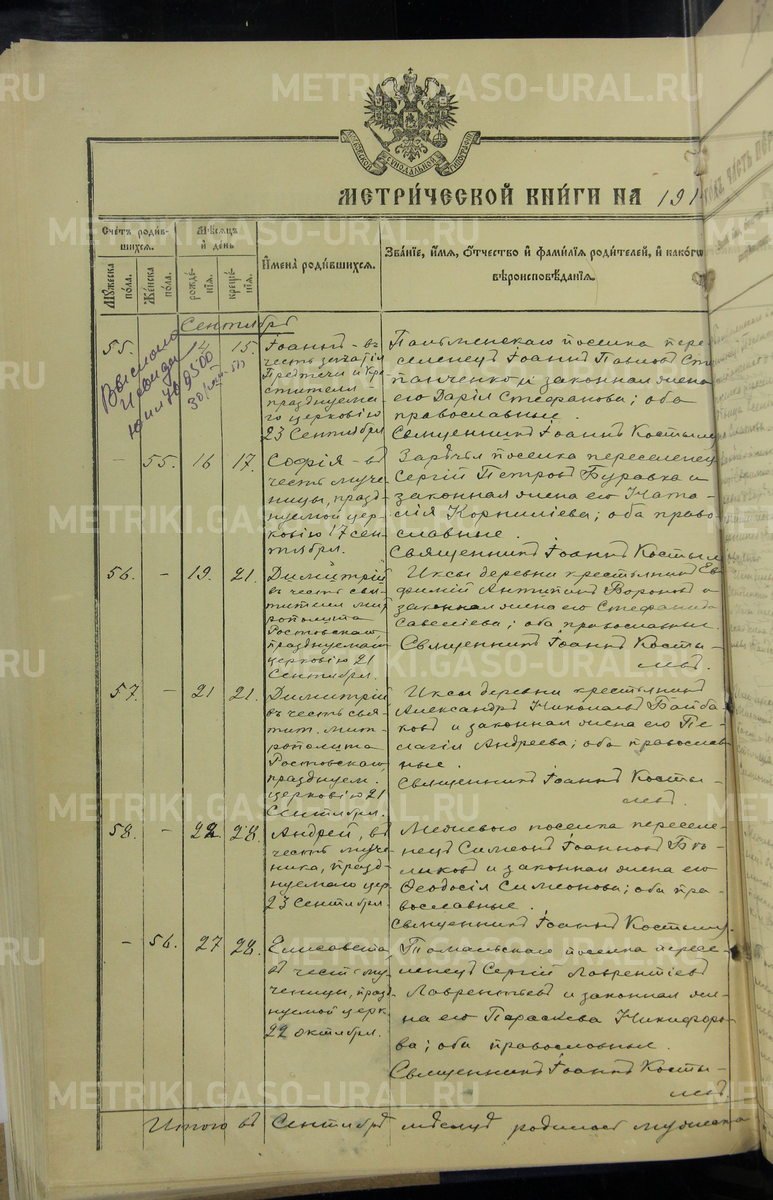 METRIKI.GASO-URAL.RU
МОСКОВСКОЙ СѴНОДАЛЬНОЙ ТИПОГРАФІИ
МЕТРИ́ЧЕСКОЙ КНИ́ГИ НА 191
Сче́тъ роди́в-
шихся.
Мꙋжеска по́ла.
Же́нска по́ла.
Мѣ́сяцъ
и҆ де́нь
рожде́-
нїѧ.
креще́-
нїѧ.
И҆мена̀ роди́вшихсѧ.
Зва́нїе, и҆́мѧ, ѻ҆́тчество и҆ фами́лїѧ роди́телей, и҆ како́гѡ
вѣроисповѣ́данїѧ.
Сентябрь
55. 15. Іоаннъ - въ
честь зачатія
Предтечи и Кре-
стителя
празднуема-
го церковію
23 Сентября
поселка пере-
селенецъ Іоаннъ Павловъ Сте
панченко и законная жена
его Дарія Стефанова; оба
православные.
Священникъ Іоаннъ Костылев
- 55. 16 17. Софія - въ
честь муче-
ницы, празд-
нуемой цер-
ковію 17 сен-
тября.
поселка переселенец
Сергій Петровъ Буравка и
законная жена его Ната-
лія Корниліева; оба право-
славные.
Священникъ Іоаннъ Костылев
56. - 19. 21. Димитрій
въ честь свя-
тителя мит
рополита
Ростовскаго,
празднуемаго
церковію 21
Сентября.
Иксы деревни крестьянинъ Ев
фимій Антипинъ Вороновъ и
законная жена его Стефанида
Савеліева; оба православные.
Священникъ Іоаннъ Косты-
левъ.
57. - 21 21. Димитрій
въ честь свя-
тит. мит-
рополита
Ростовскаго,
празднуем.
церковію 21
Сентября.
Иксы деревни крестьянинъ
Александръ Николаевъ Байба
ковъ и законная жена его Пе-
лагія Андреева; оба православ
ные.
Священникъ Іоаннъ Косты-
левъ.
58. - 22. 28. Андрей, въ
честь муче-
ника, празд-
нуемаго цер.
23 Сентября.
поселка переселе-
нецъ Симеонъ Іоанновъ
и законная жена его
Ѳеодосія Симеонова; оба пра-
вославные.
Священникъ Іоаннъ Костылев
- 56. 27 28. Елисавета
въ честь му-
ченицы, празд-
нуемой церк.
22 октября.
поселка пересе-
ленецъ Сергій Лаврентіевъ
Лаврентьевъ и законная же-
на его Параскева Никифоро-
ва; оба православные.
Священникъ Іоаннъ Косты-
левъ
Итого въ Сентябрѣ мѣсяцѣ родилось мужеска